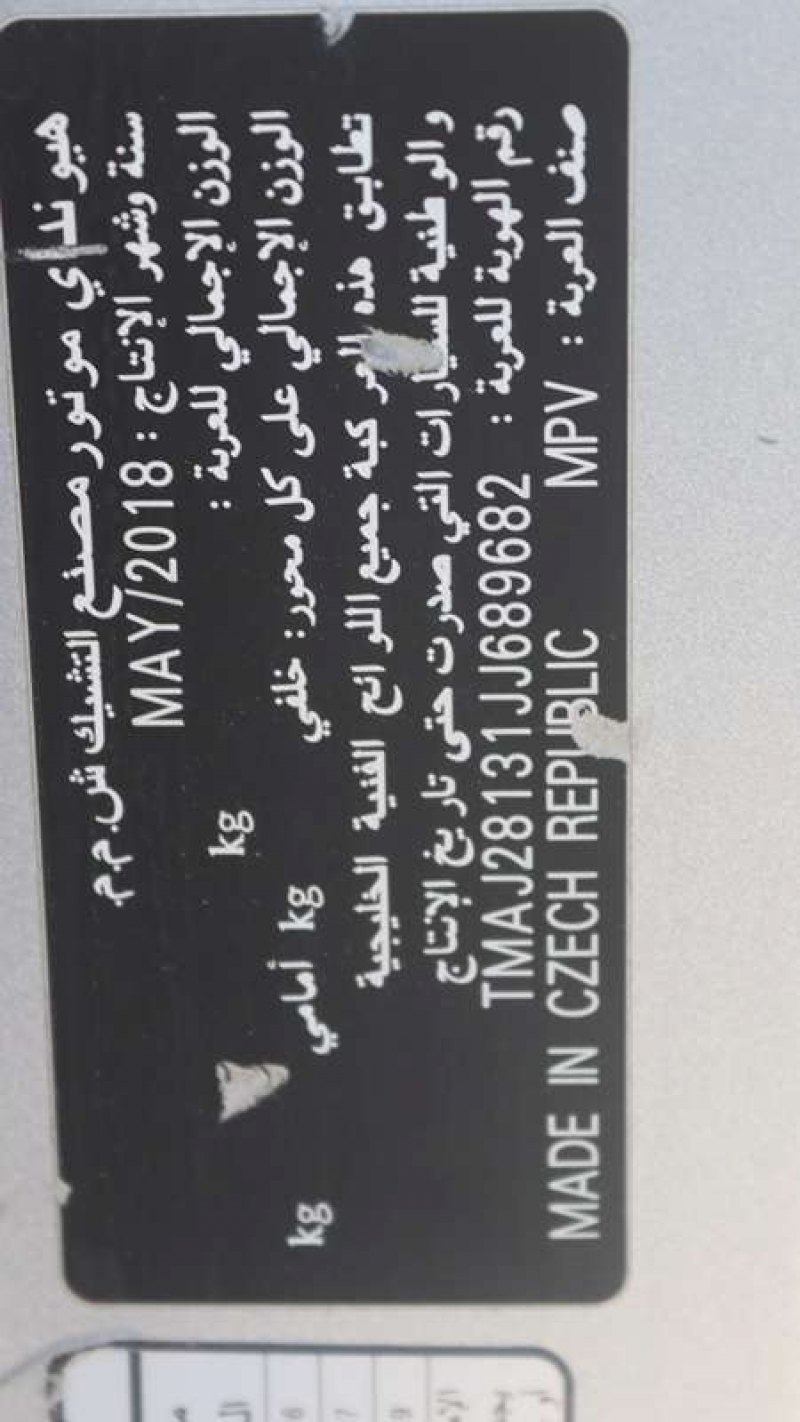 هيونداي موتور مصنع التشيك ش.م.م
سنة وشهر الإنتاج : MAY/2018
الوزن الإجمالي للعربة : kg
الوزن الإجمالي على كل محور: خلفي kg أمامي kg
تطابق هذه المركبة جميع اللوائح الفنية الخليجية
والوطنية للسيارات التي صدرت حتى تاريخ الإنتاج
رقم الهوية للعربة : TMAJ28131JJ689682
صنف العربة : MPV MADE IN CZECH REPUBLIC